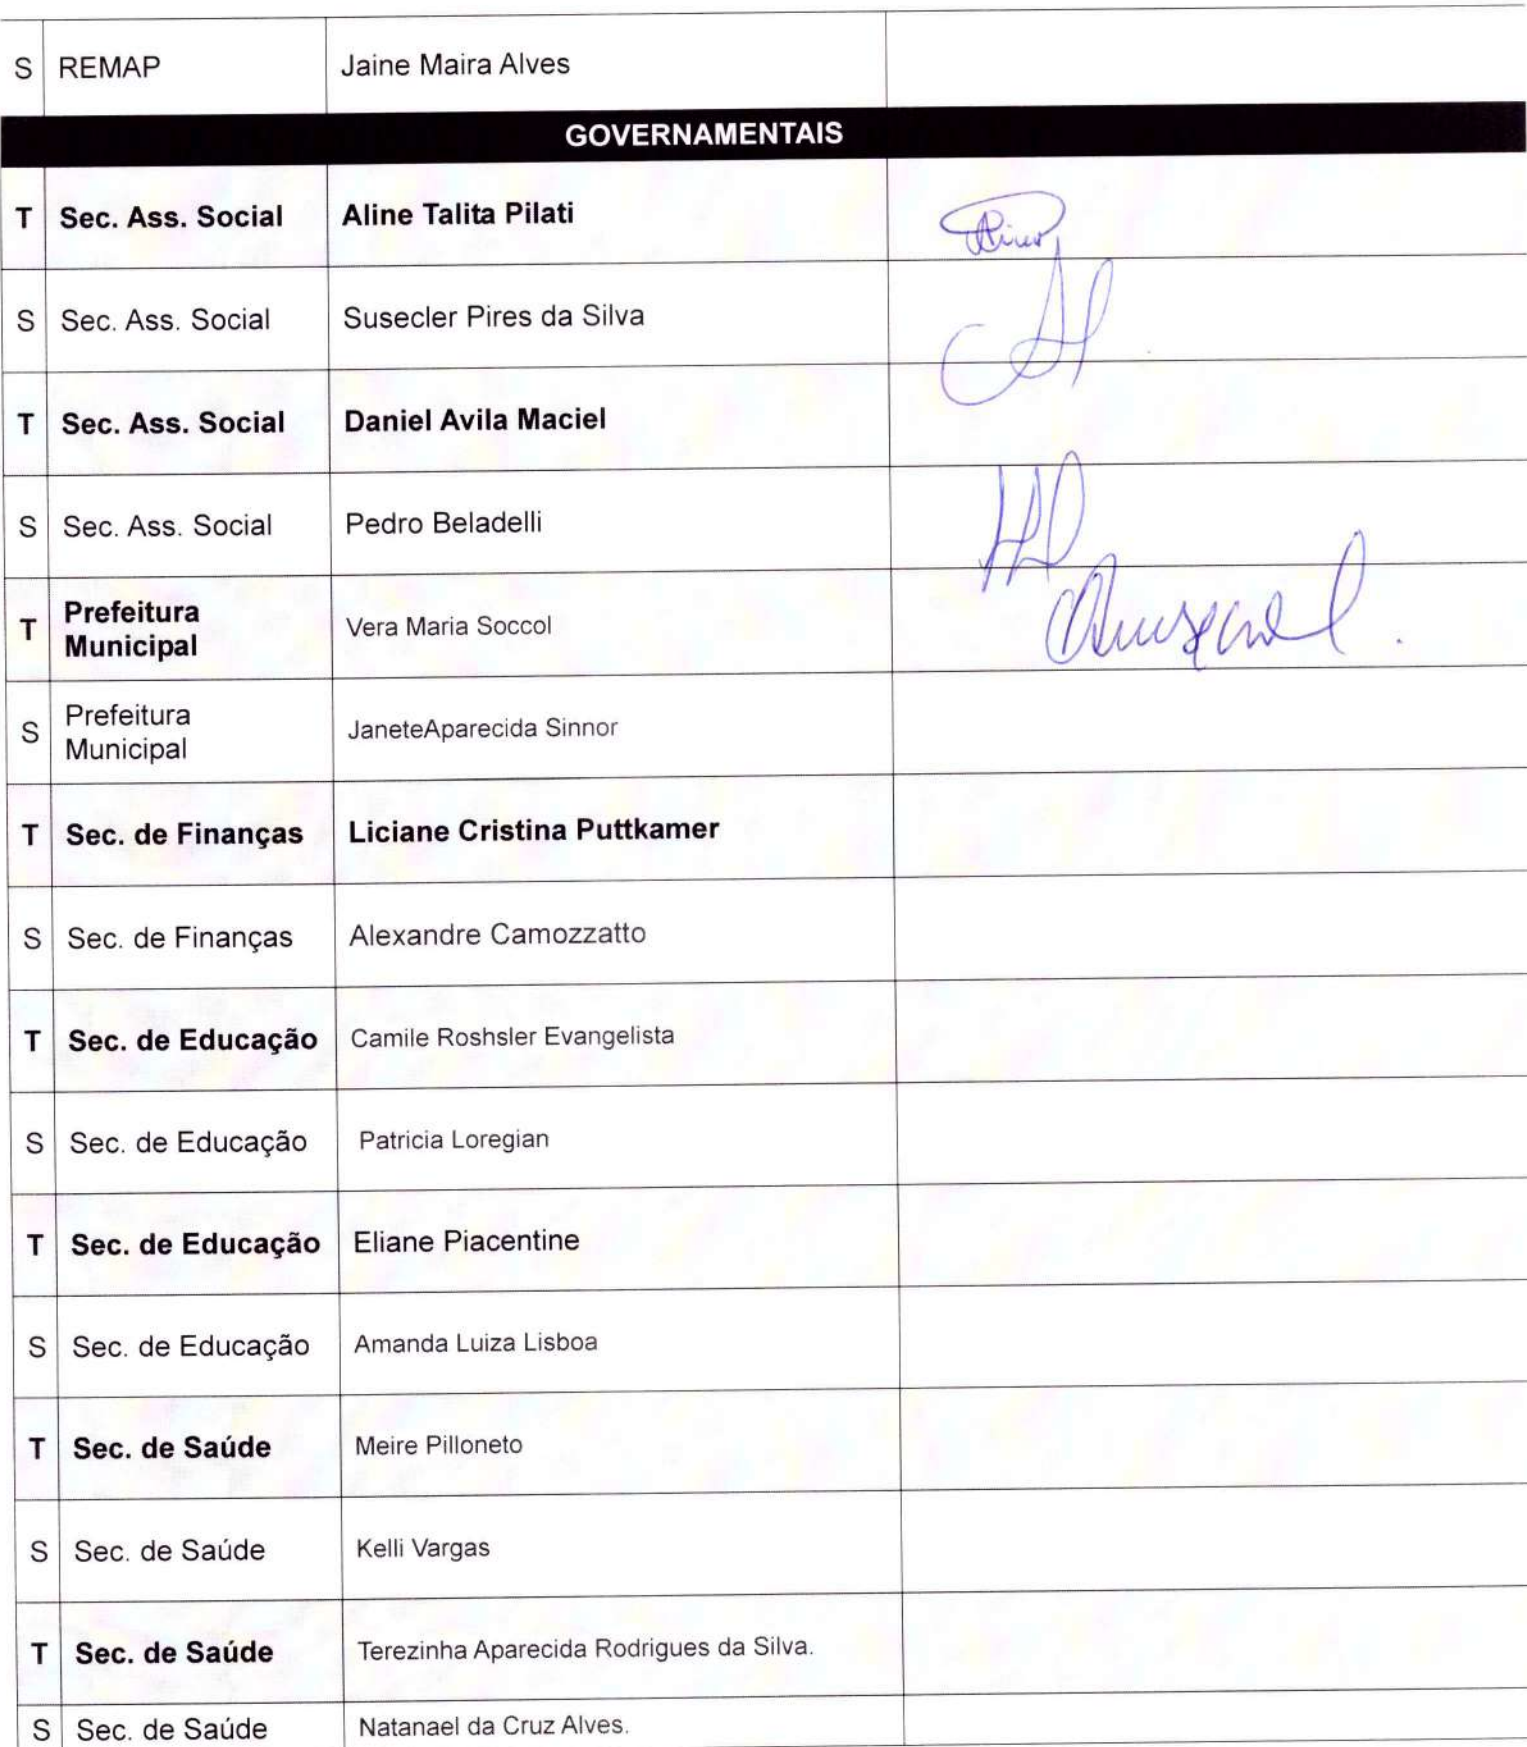 S REMAP Jaine Maira Alves
GOVERNAMENTAIS
T Sec. Ass. Social Aline Talita Pilati
S Sec. Ass. Social Susecler Pires da Silva
T Sec. Ass. Social Daniel Avila Maciel
S Sec. Ass. Social Pedro Beladelli
T Prefeitura Municipal Vera Maria Soccol
S Prefeitura Municipal JaneteAparecida Sinnor
T Sec. de Finanças Liciane Cristina Puttkamer
S Sec. de Finanças Alexandre Camozzatto
T Sec. de Educação Camile Roshsler Evangelista
S Sec. de Educação Patricia Loregian
T Sec. de Educação Eliane Piacentine
S Sec. de Educação Amanda Luiza Lisboa
T Sec. de Saúde Meire Pilloneto
S Sec. de Saúde Kelli Vargas
T Sec. de Saúde Terezinha Aparecida Rodrigues da Silva.
S Sec. de Saúde Natanael da Cruz Alves.